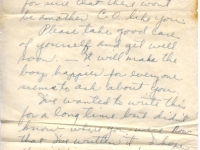 for sure that there won't
be another C.O. like you.
Please take good care
of yourself and get well
soon. — It will make the
boys happier for everyone
seems to ask about you.
I've wanted to write this
for a long time but didn't
know where you were. Now
that I've written it I hope